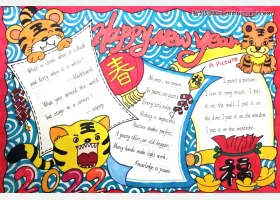 Happy new year
What is clean when it is black
and dirty when it is white?
blackboard
What goes around the world
but stays in a corner?
stamp
春
No sweet, no sweat.
Every little helps.
Nothing is impossible.
Practice makes perfect.
Many hands make light work.
Knowledge is power.
A Picture
I paint a picture,
I love it very much. I put
it on the wall. I put it on
the door. I put it on the window.
I put it on the wardrobe.
福
2022